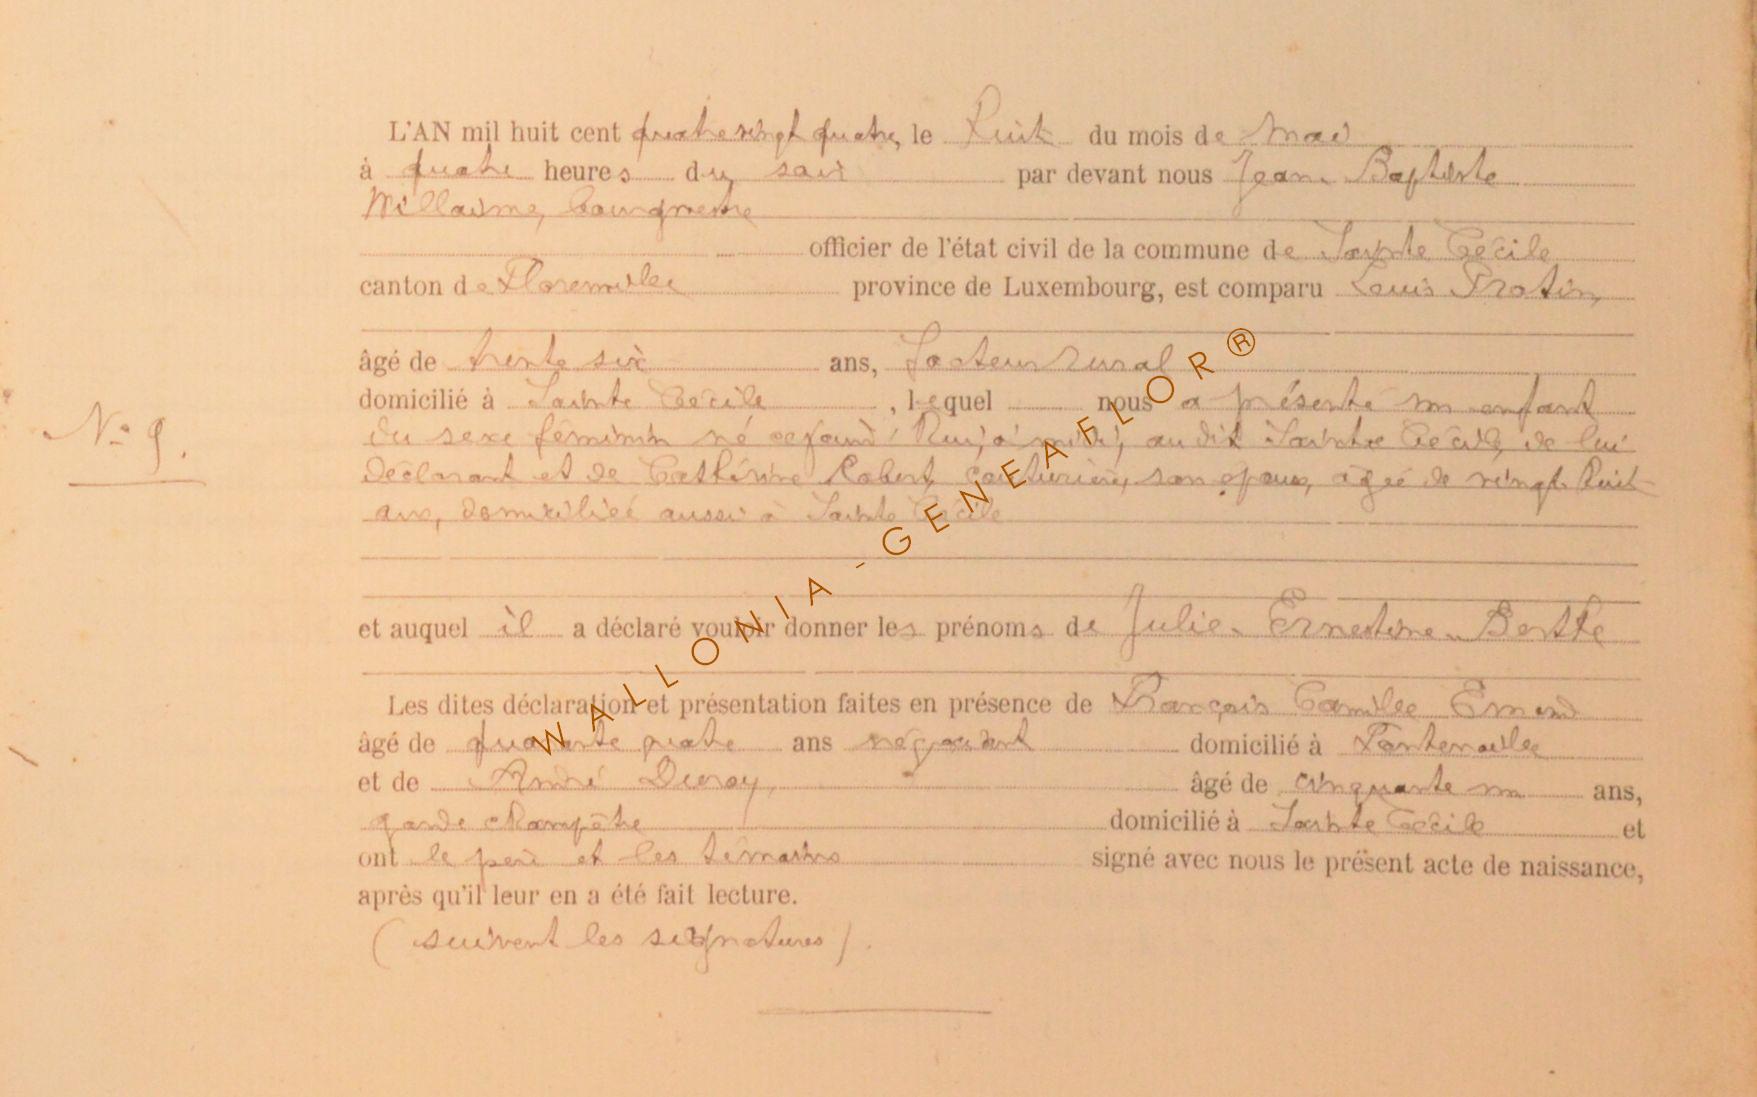 L'AN mil huit cent quatre vingt quatre, le huit du mois de Mai
à quatre heures du soir par devant nous Jean Baptiste
Willaime, bourgmestre
officier de l'état civil de la commune de Sainte Cécile
canton de Florenville province de Luxembourg, est comparu Louis Protin,
âgé de trente six ans, facteur rural
domicilié à Sainte Cécile, lequel nous a présenté un enfant
N° 9.
du sexe féminin né cejourd'hui, à midi, au dit Sainte Cécile, de lui
déclarant et de Cathérine Robert, couturière, son épouse, âgée de vingt huit
ans, domiciliée aussi à Sainte Cécile
et auquel il a déclaré vouloir donner les prénoms de Julie - Ernestine - Berthe
Les dites déclaration et présentation faites en présence de François Camille
âgé de quarante quatre ans négociant domicilié à Fontenoille
et de André âgé de cinquante un ans,
garde champêtre domicilié à Sainte Cécile et
ont le père et les témoins signé avec nous le présent acte de naissance,
après qu'il leur en a été fait lecture.
(suivent les signatures).
WALLONIA - GENEAFLOR ®